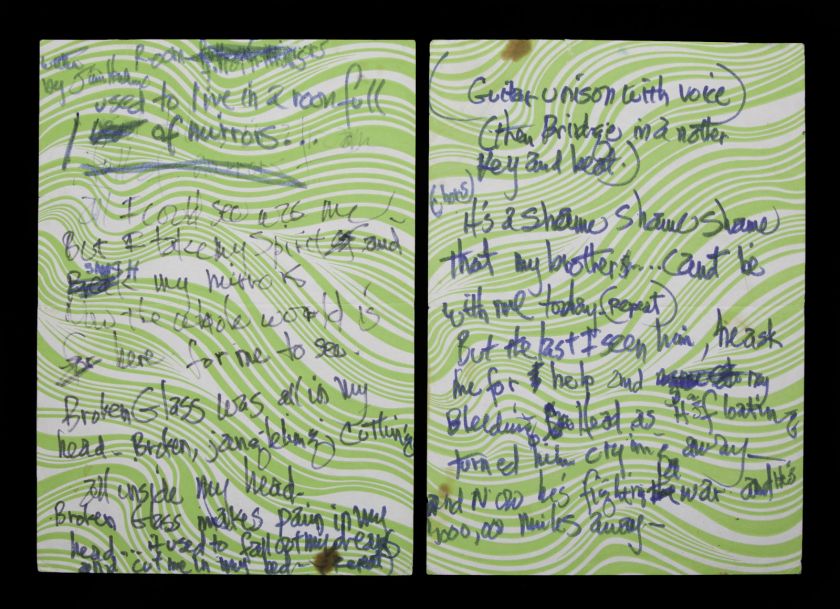 written Room full of mirrors
by Jimi Hendrix
used to live in a room full
I of mirrors...
All I could see was me
But I take my spirit and
smash my mirrors
Now the whole world is
here for me to see.
Broken Glass was all in my
head - Broken, jangeling, cutting
all inside my head -
Broken Glass makes pain in my
head... it used to fall of my dreams
and cut me in my bed - (repeat)
(Guitar unison with voice)
(then Bridge in a nother
key and beat.)
It's a shame shame shame
that my brothers.... cant be
with me today (repeat)
But the last I seen him, he ask
me for help and my
Bleeding head as it's floating
turned him crying away —
and Now he's fighting war and it's
1000,00 miles away —